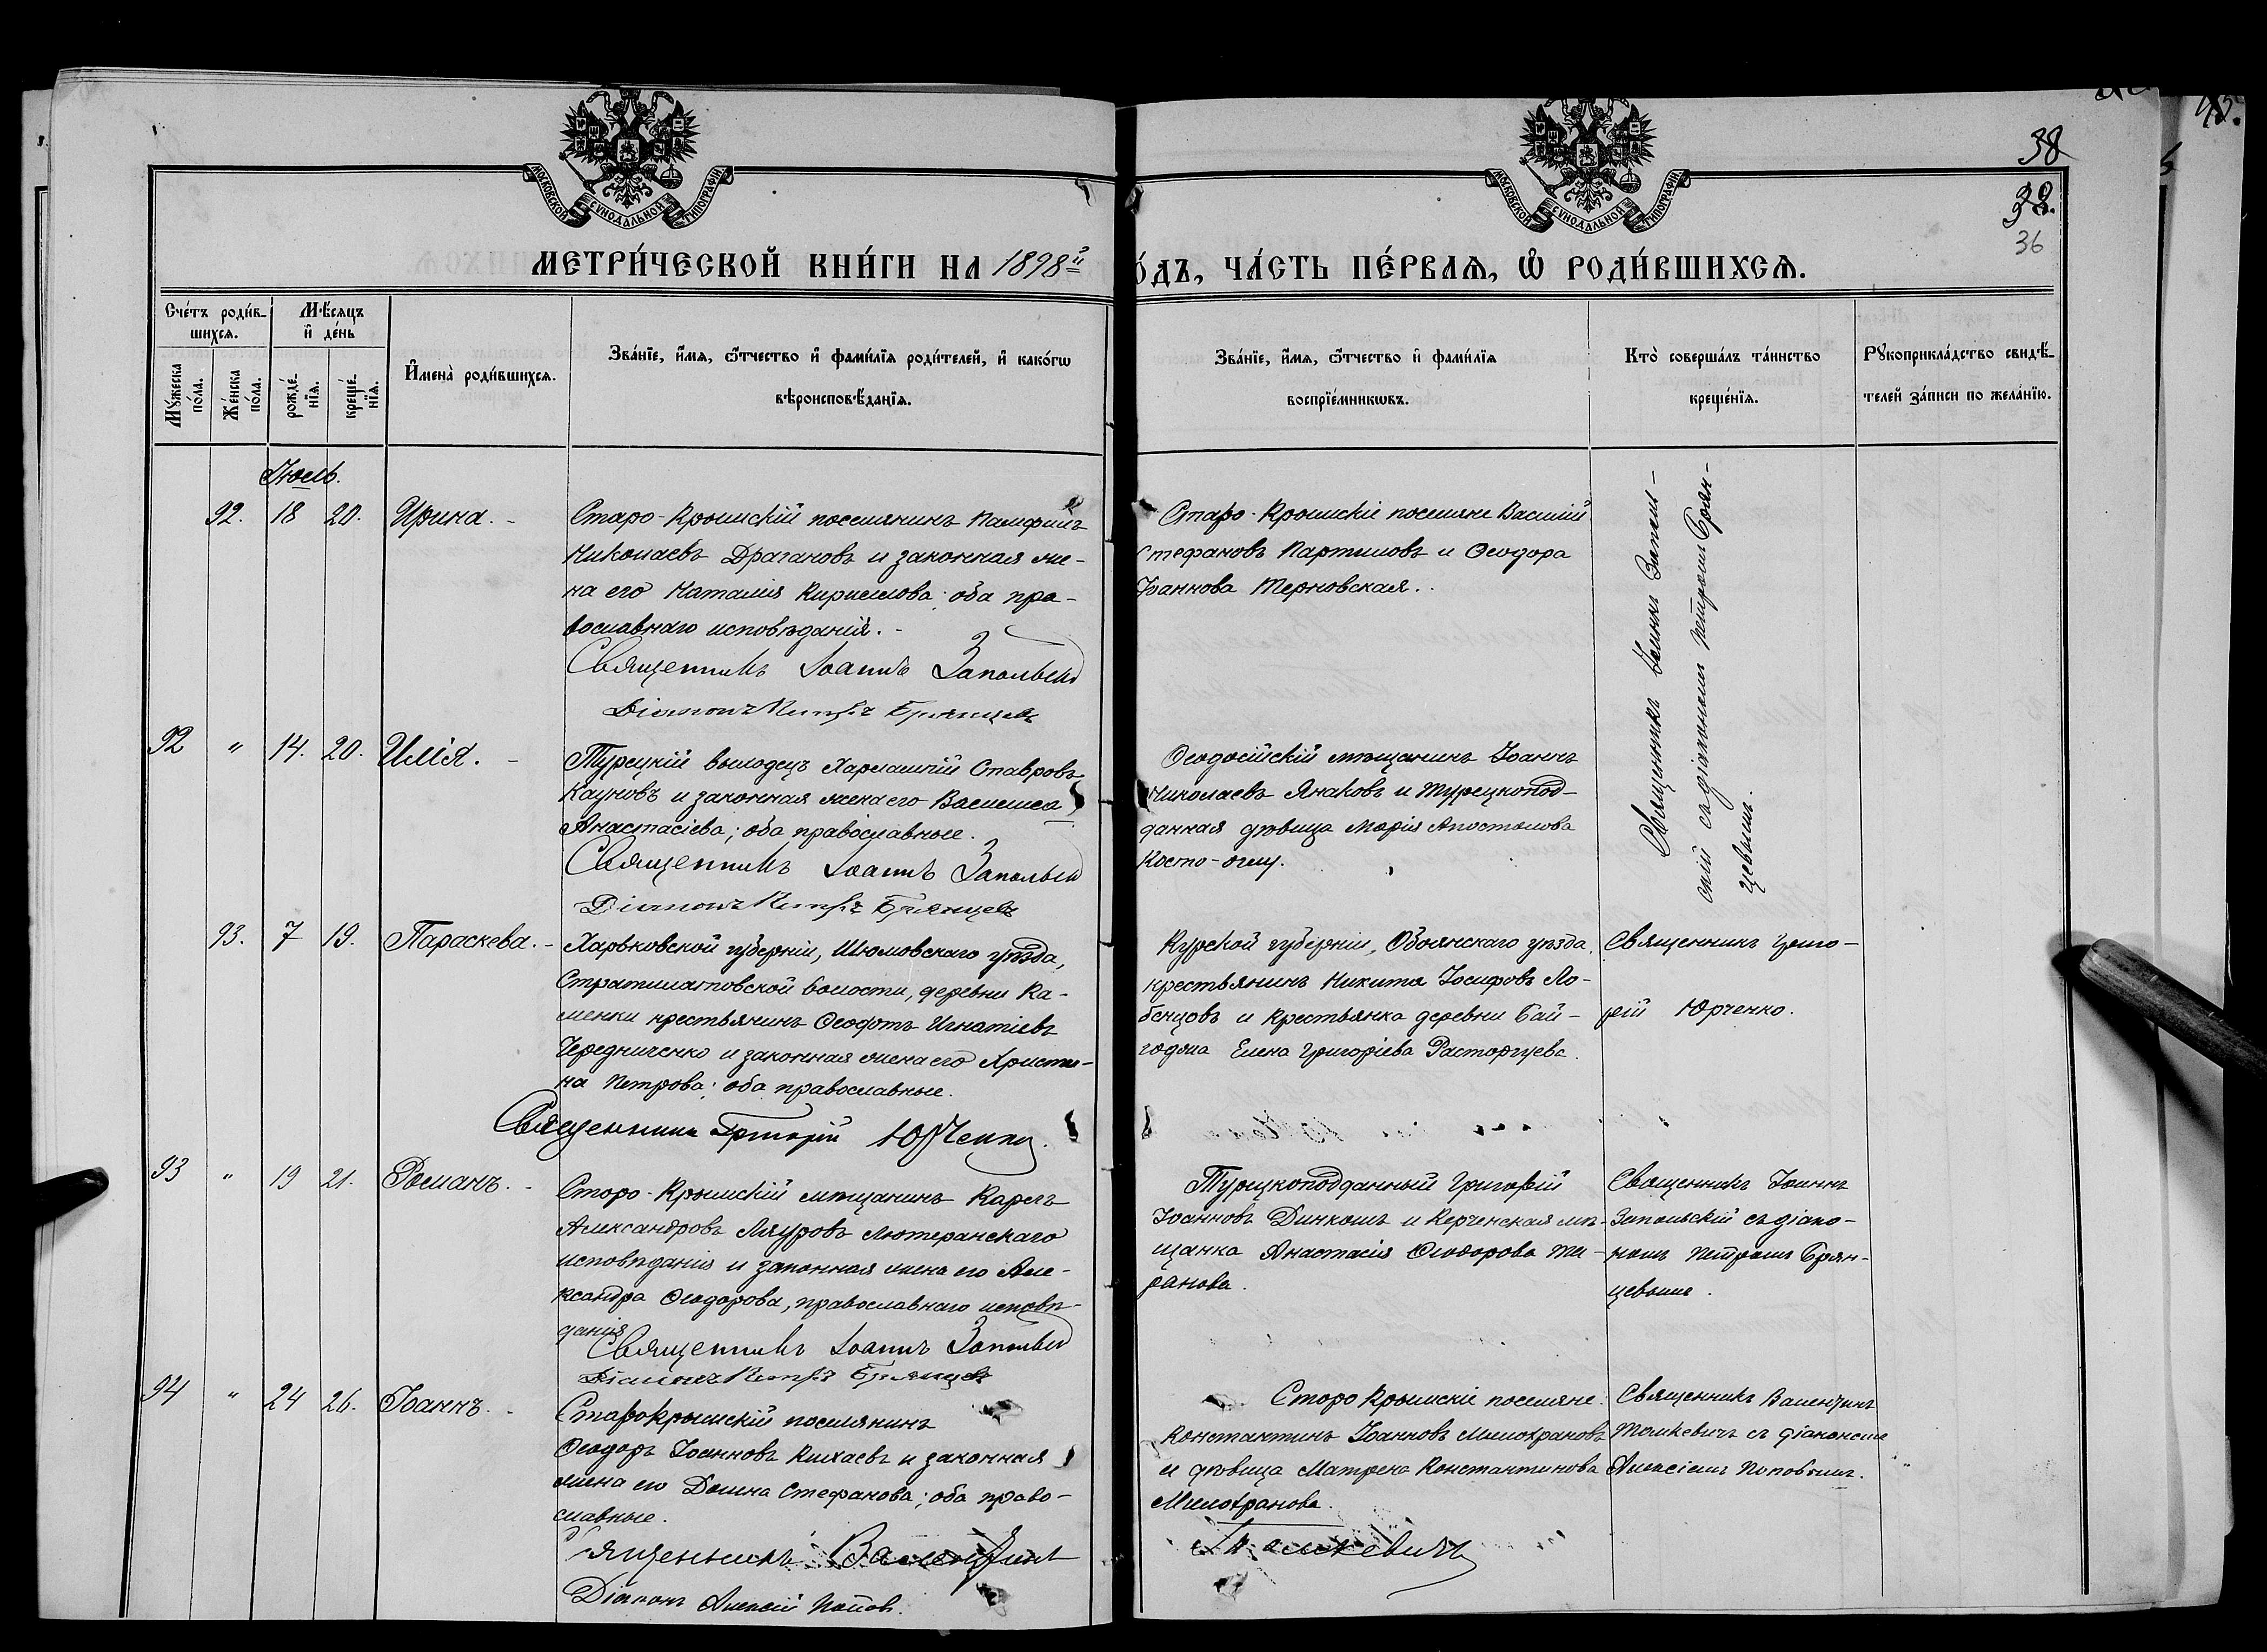 МОСКОВСКОЙ СѴНОДАЛЬНОЙ ТИПОГРАФІИ
МОСКОВСКОЙ СѴНОДАЛЬНОЙ ТИПОГРАФІИ
38
38.
36
МЕТРИ́ЧЕСКОЙ КНИ́ГИ НА 1898й
О́ДЪ, ЧА́СТЬ ПЕ́РВАѦ, Ѡ҆ РОДИ́ВШИХСѦ.
Сче́тъ роди́в-
шихсѧ.
Мѣ́сѧцъ
и҆ де́нь
Мꙋ́жеска по́ла.
Же́нска по́ла.
рожде́-
нїѧ.
креще́-
нїѧ.
И҆мена̀ роди́вшихсѧ.
Зва́нїе, и҆́мѧ, ѻ҆́тчество и҆ фами́лїѧ роди́телей, и҆ како́гѡ
вѣроисповѣ́данїѧ.
Зва́нїе, и҆́мѧ, ѻ҆́тчество и҆ фами́лїѧ
воспрїе́мникѡвъ.
Кто̀ соверша́лъ та́инство
креще́нїѧ.
Рꙋкоприкла́дство свидѣ́-
телей за́писи по жела́нїю.
Іюль.
92. 18 20. Ирина. -
Старо-Крымскій поселянинъ Памфилъ
Николаевъ Драгановъ и законная же-
на его Наталия Кириллова; оба пра-
вославнаго исповѣданія. -
Священникъ Іоаннъ Запольскій
Діаконъ Петръ Брянцевъ
Старо-Крымскіе поселяне Василій
Стефановъ Партиловъ и Ѳеодора
Іоаннова Терновская.
Священникъ Іоаннъ Заполь-
скій съ діакономъ Петромъ Брян-
цевымъ.
92 " 14. 20. Илія. -
Турецкій выходецъ Харлампій Ставровъ
Кауновъ и законная жена его Василиса
Анастасіева; оба православные.
Священникъ Іоаннъ Запольскій
Діаконъ Петръ Брянцевъ
Ѳеодосійскій мѣщанинъ Іоаннъ
Николаевъ Янаковъ и турецкопод-
данная дѣвица Марія Апостолова
Косто-оглу.
93. 7 19. Параскева. -
Харьковской губерніи, Изюмовскаго уѣзда,
Стратилатовской волости, деревни Ка-
менки крестьянинъ Ѳеодотъ Игнатіевъ
Чередниченко и законная жена его Христи-
на Петрова; оба православные.
Священникъ Григорій Юрченко.
Курской губерніи, Обоянскаго уѣзда,
крестьянинъ Никита Іосифовъ Ло-
бенцовъ и крестьянка деревни Бай-
годжа Елена Григоріева Расторгуева.
Священникъ Григо-
рій Юрченко.
93 " 19 21. Романъ. -
Старо-Крымскій мѣщанинъ Карлъ
Александровъ Ляуровъ лютеранскаго
исповѣданія и законная жена его Але-
ксандра Ѳеодорова, православнаго исповѣ-
данія
Священникъ Іоаннъ Запольскій
Діаконъ Петръ Брянцевъ
Турецкоподданный Григорій
Іоанновъ Динкошъ и Керченская мѣ-
щанка Анастасія Ѳеодорова Ти-
ранова.
Священникъ Іоаннъ
Запольскій съ діако-
номъ Петромъ Брян-
цевымъ.
94 " 24 26. Іоаннъ. -
Старокрымскій поселянинъ
Ѳеодоръ Іоанновъ Кихаевъ и законная
жена его Домна Стефанова; оба право-
славные.
Священникъ Валентинъ
Діаконъ Алексій Поповъ.
Старокрымскіе поселяне
Константинъ Іоанновъ Милотрановъ
и дѣвица Матрена Константинова
Милотранова.
Томкевичъ
Священникъ Валентинъ
Томкевичъ съ діакономъ
Алексіемъ Поповымъ.